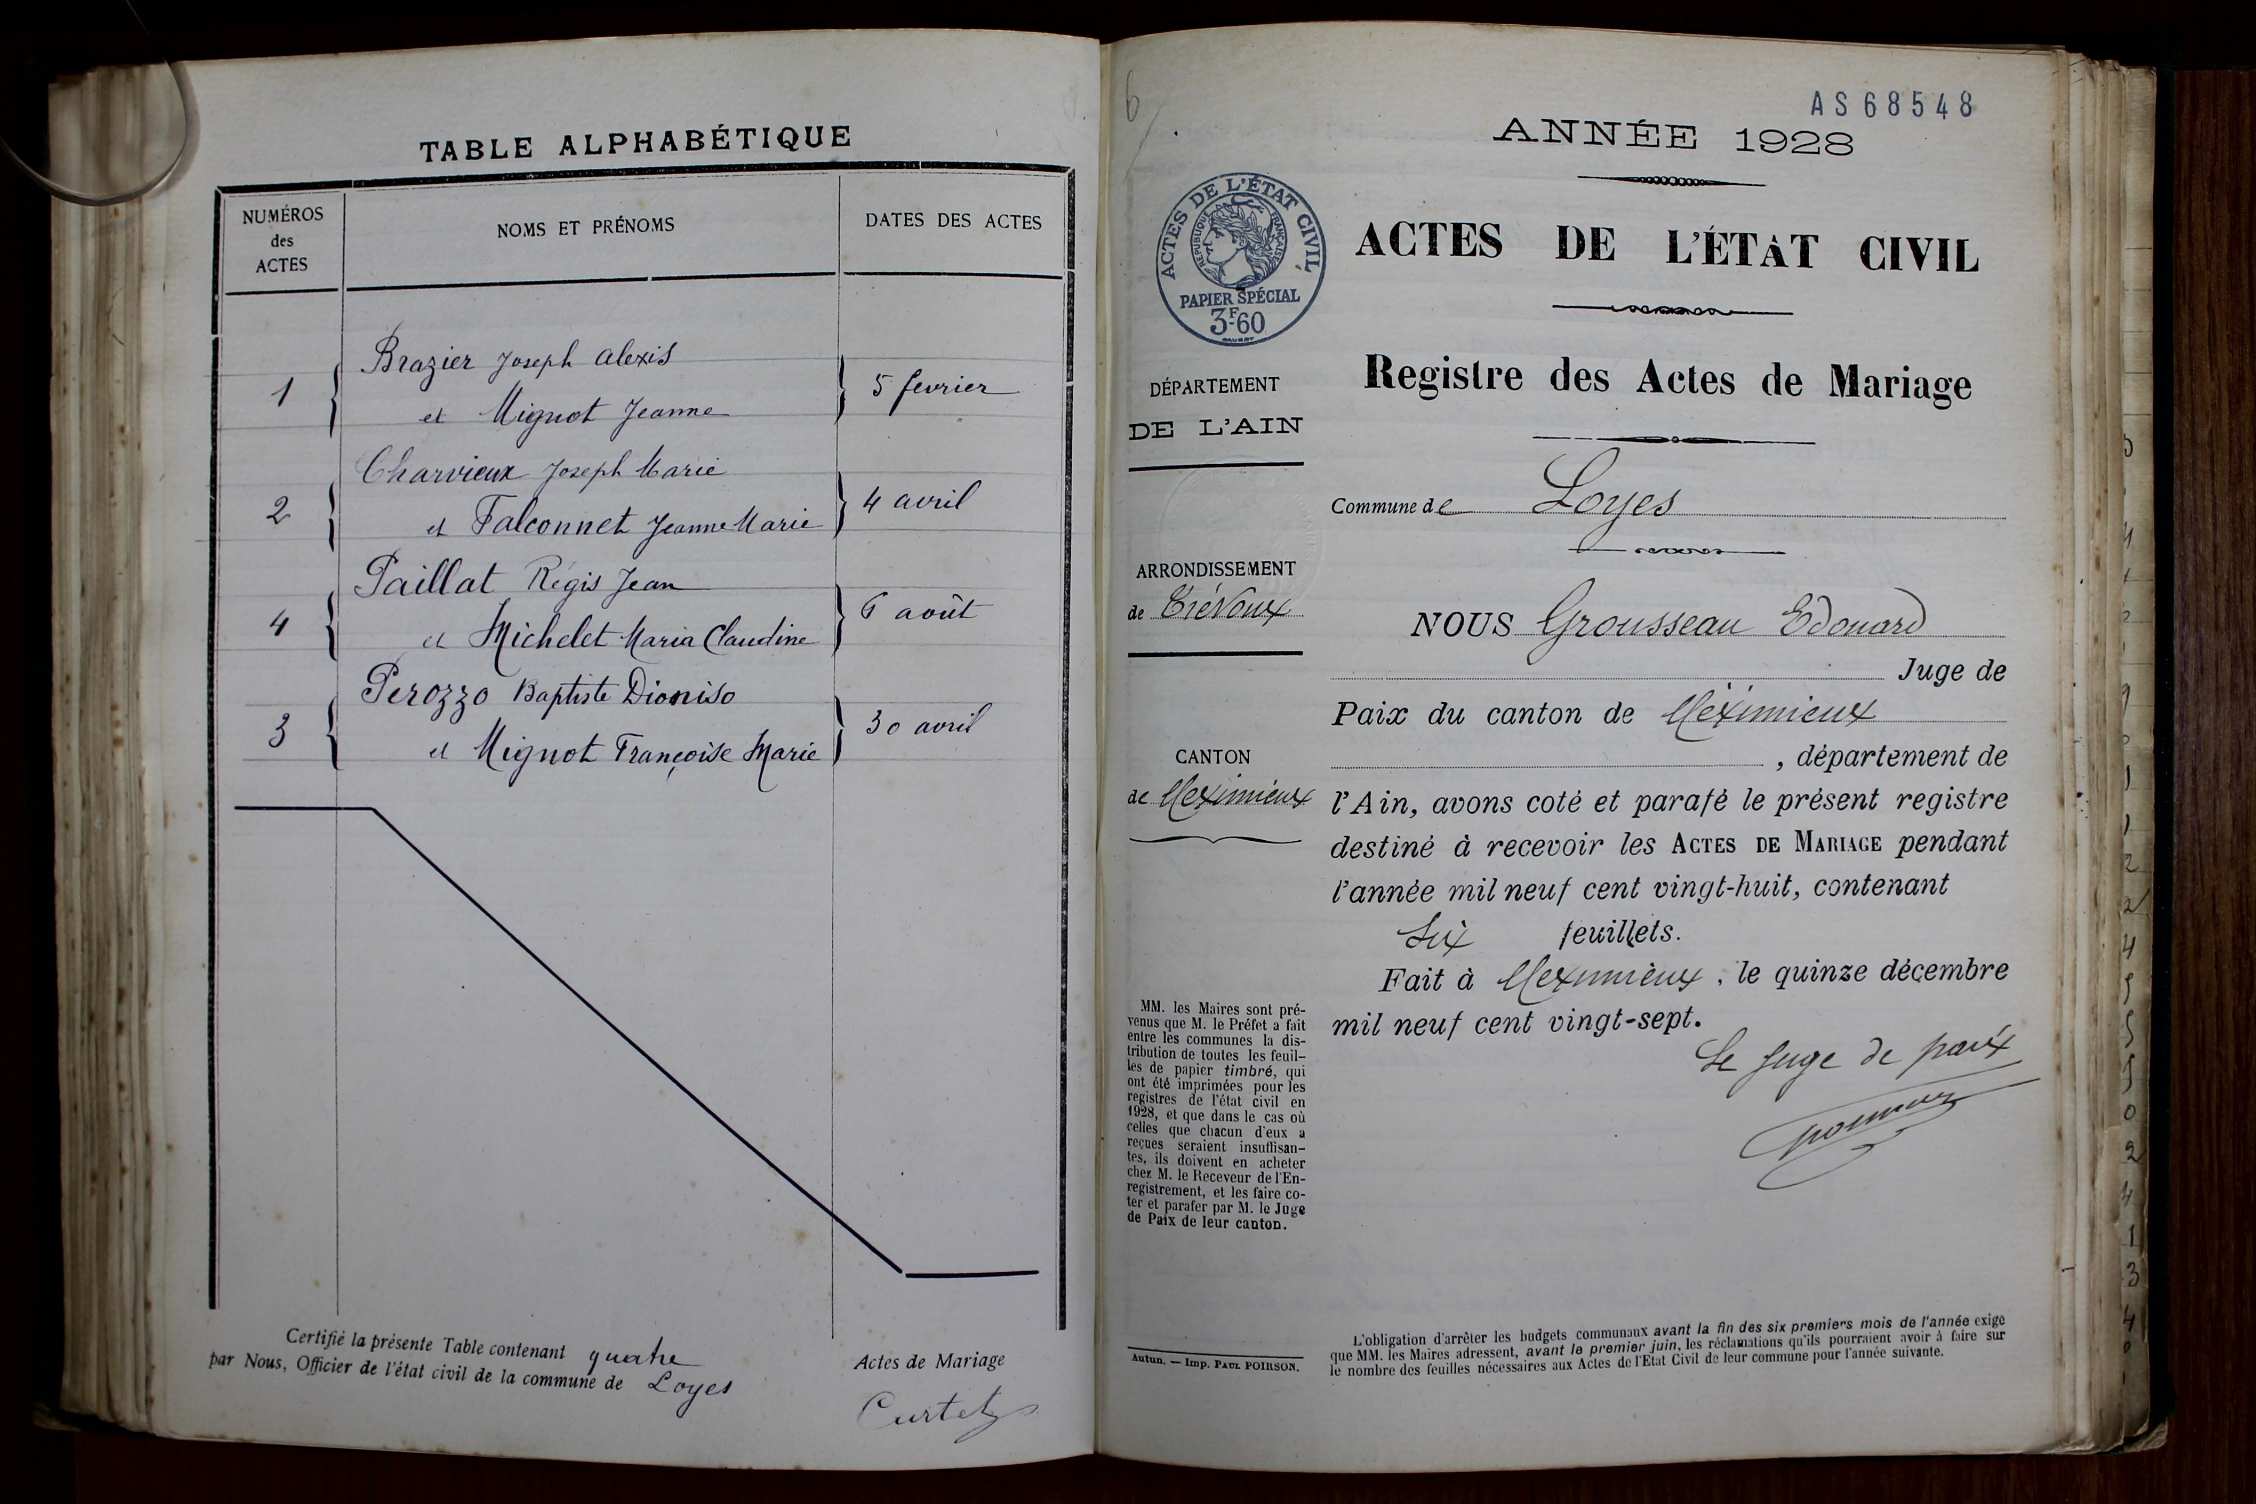 TABLE ALPHABÉTIQUE
NUMÉROS
des
ACTES
NOMS ET PRÉNOMS
DATES DES ACTES
Brazier Joseph Alexis
1
5 fevrier
et Mignot Jeanne
Charvieux Joseph Marie
2
4 avril
et Falconnet Jeanne Marie
Paillat Régis Jean
4
6 août
et Michelet Maria Claudine
Perozzo Baptiste Dioniso
3
30 avril
et Mignot Françoise Marie
Certifié la présente Table contenant quatre
Actes de Mariage
par Nous, Officier de l'état civil de la commune de Loyes
Curtet
6
AS68548
ANNÉE 1928
ACTES DE L'ÉTAT CIVIL
RÉPUBLIQUE FRANÇAISE
PAPIER SPÉCIAL
3F60
ACTES DE L'ÉTAT CIVIL
Registre des Actes de Mariage
DÉPARTEMENT
DE L'AIN
Commune de Loyes
ARRONDISSEMENT
de Trévoux
NOUS Grousseau Edouard
Juge de
Paix du canton de Méximieux
, département de
CANTON
de Meximieux
l'Ain, avons coté et parafé le présent registre
destiné à recevoir les ACTES DE MARIAGE pendant
l'année mil neuf cent vingt-huit, contenant
Six feuillets.
Fait à Meximieux, le quinze décembre
mil neuf cent vingt-sept.
Le Juge de paix
MM. les Maires sont pré-
venus que M. le Préfet a fait
entre les communes la dis-
tribution de toutes les feuil-
les de papier timbré, qui
ont été imprimées pour les
registres de l'état civil en
1928, et que dans le cas où
celles que chacun d'eux a
reçues seraient insuffisan-
tes, ils doivent en acheter
chez M. le Receveur de l'En-
registrement, et les faire co-
ter et parafer par M. le Juge
de Paix de leur canton.
Autun. — Imp. PAUL POIRSON.
L'obligation d'arrêter les budgets communaux avant la fin des six premiers mois de l'année exige
que MM. les Maires adressent, avant le premier juin, les réclamations qu'ils pourraient avoir à faire sur
le nombre des feuilles nécessaires aux Actes de l'Etat Civil de leur commune pour l'année suivante.